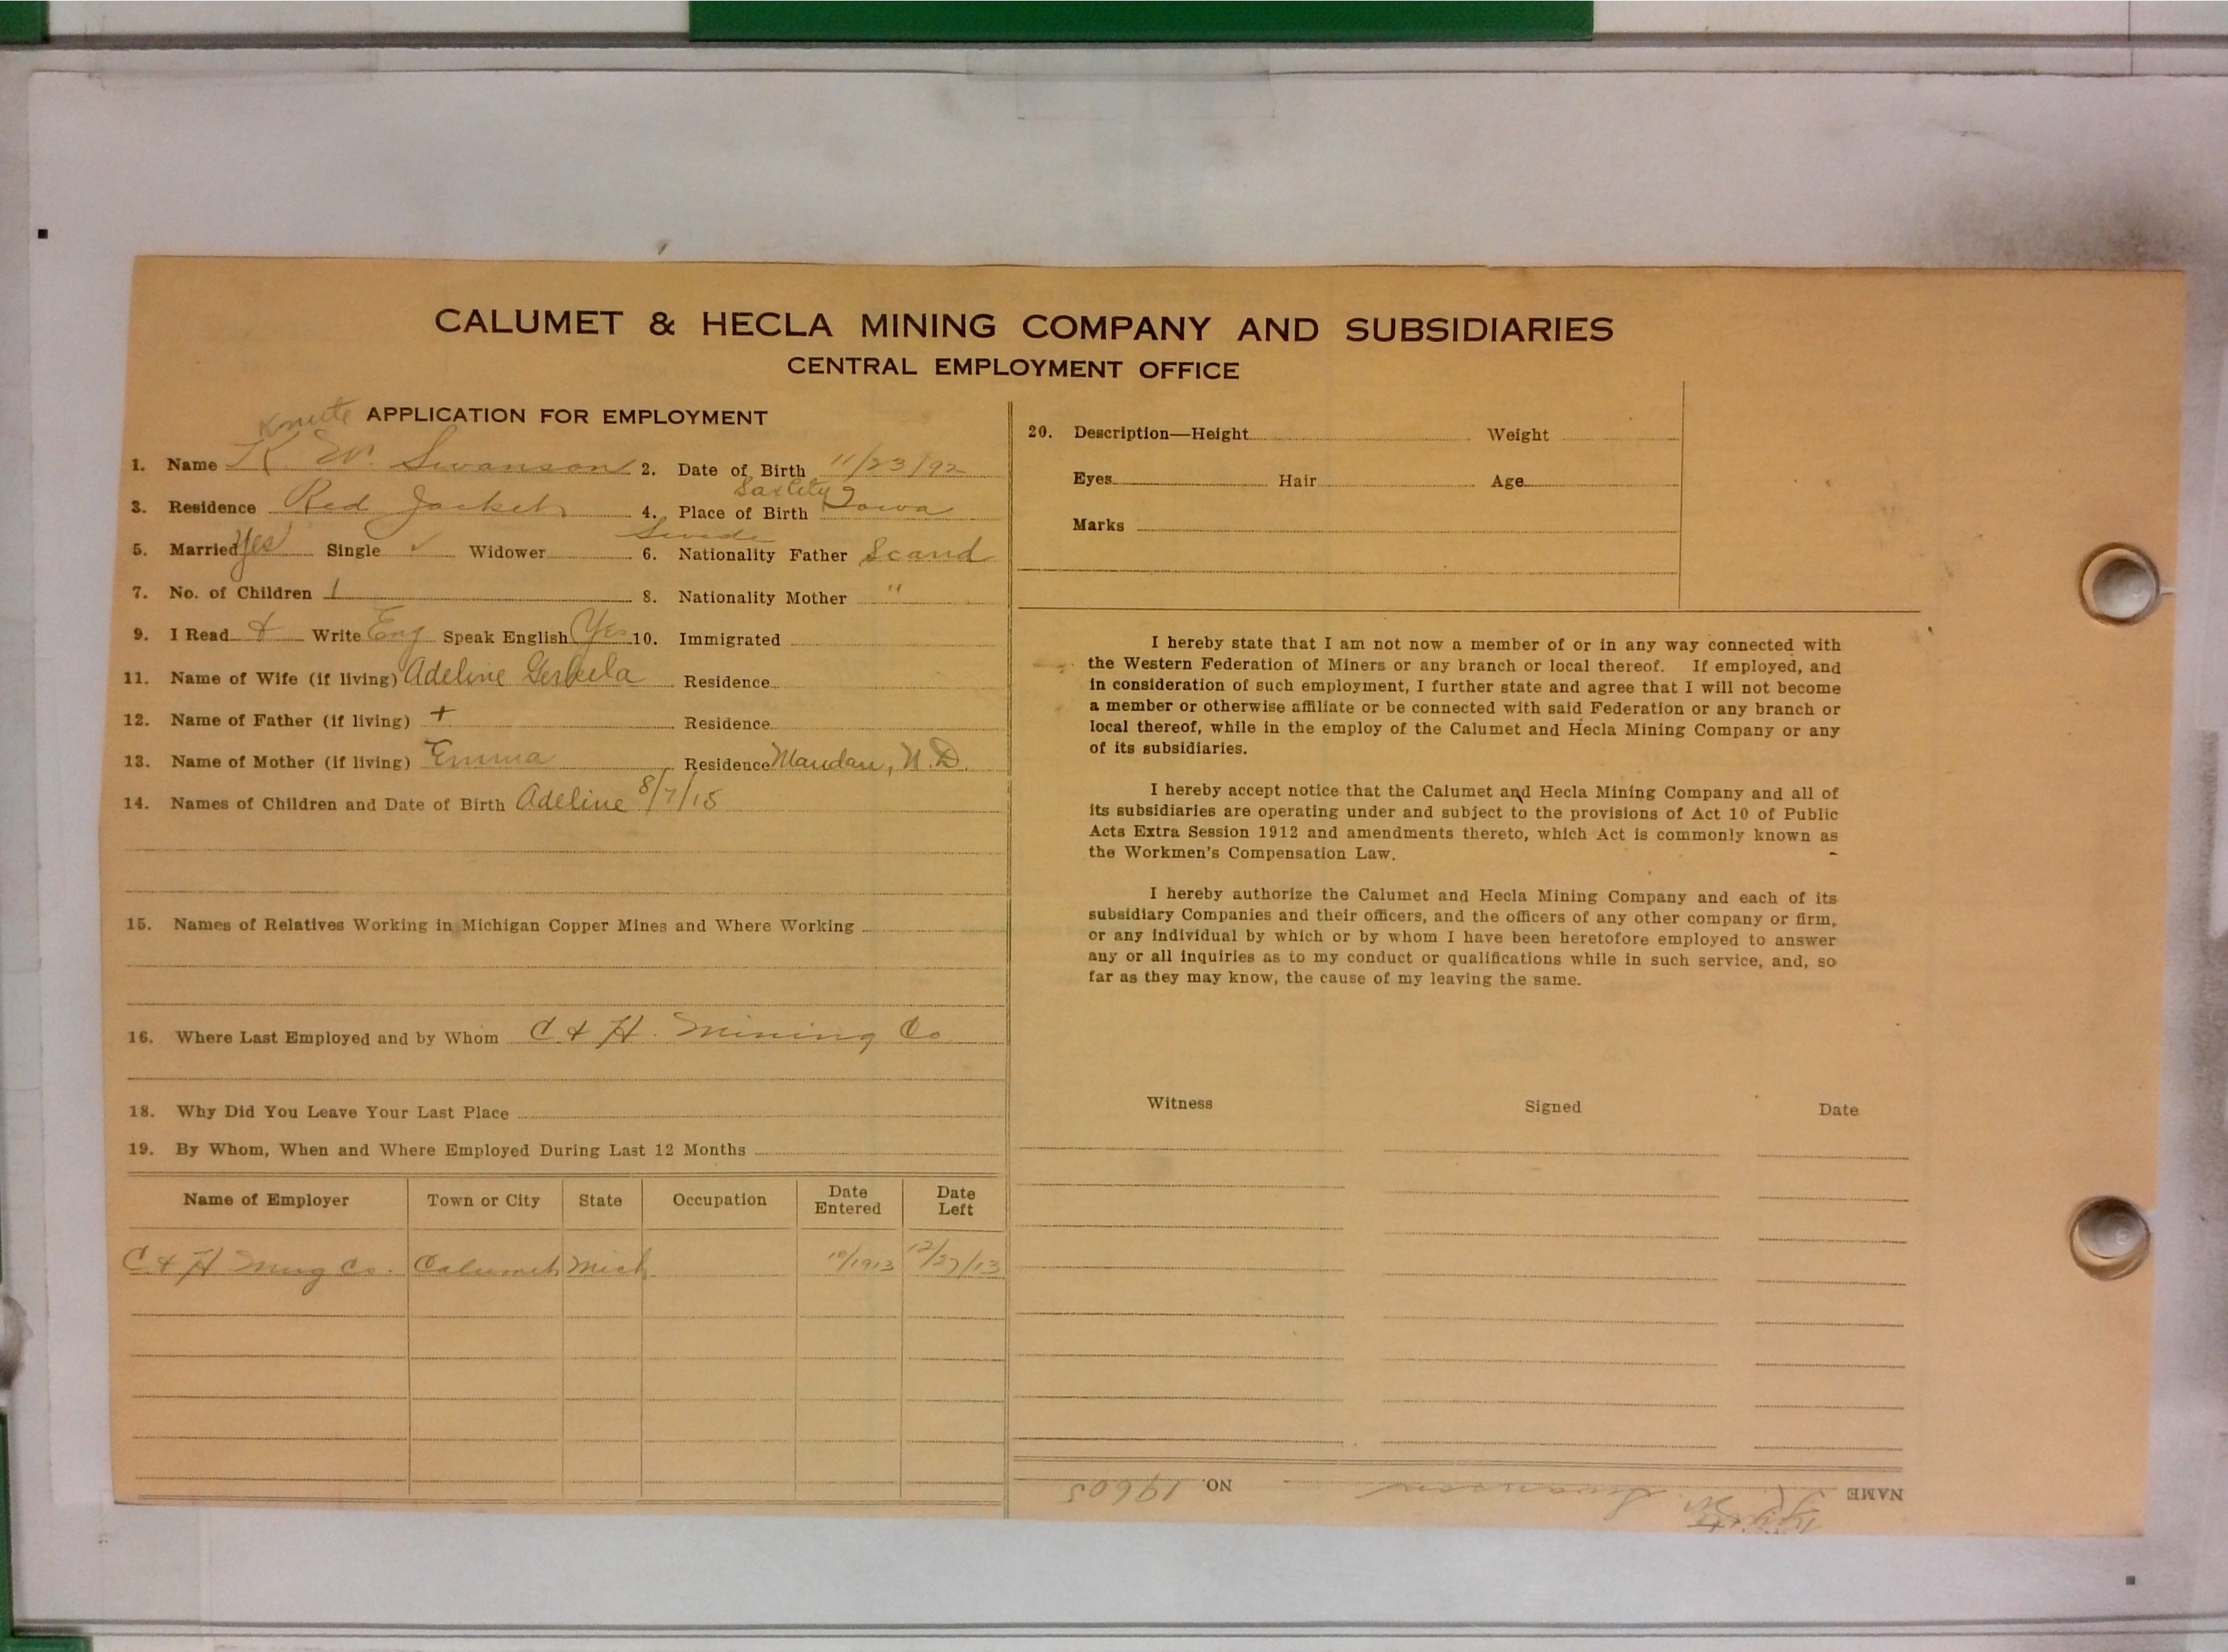 CALUMET & HECLA MINING COMPANY AND SUBSIDIARIES
CENTRAL EMPLOYMENT OFFICE
Knute
APPLICATION FOR EMPLOYMENT
1. Name K. W. Swanson 2. Date of Birth 11/23/92
Sac City
3. Residence Red Jacket 4. Place of Birth Iowa
Swede
5. Married Yes Single ✓ Widower 6. Nationality Father Scand
7. No. of Children 1 8. Nationality Mother "
9. I Read & Write Eng Speak English Yes 10. Immigrated
11. Name of Wife (if living) Adeline Residence
12. Name of Father (if living) + Residence
13. Name of Mother (if living) Emma Residence Mandan, N.D.
14. Names of Children and Date of Birth Adeline 8/7/15
15. Names of Relatives Working in Michigan Copper Mines and Where Working
16. Where Last Employed and by Whom C & H. Mining Co
18. Why Did You Leave Your Last Place
19. By Whom, When and Where Employed During Last 12 Months
Name of Employer Town or City State Occupation Date Entered Date Left
C & H Mng Co. Calumet Mich 10/1913 12/27/13
20. Description—Height Weight
Eyes Hair Age
Marks
I hereby state that I am not now a member of or in any way connected with
the Western Federation of Miners or any branch or local thereof. If employed, and
in consideration of such employment, I further state and agree that I will not become
a member or otherwise affiliate or be connected with said Federation or any branch or
local thereof, while in the employ of the Calumet and Hecla Mining Company or any
of its subsidiaries.
I hereby accept notice that the Calumet and Hecla Mining Company and all of
its subsidiaries are operating under and subject to the provisions of Act 10 of Public
Acts Extra Session 1912 and amendments thereto, which Act is commonly known as
the Workmen's Compensation Law.
I hereby authorize the Calumet and Hecla Mining Company and each of its
subsidiary Companies and their officers, and the officers of any other company or firm,
or any individual by which or by whom I have been heretofore employed to answer
any or all inquiries as to my conduct or qualifications while in such service, and, so
far as they may know, the cause of my leaving the same.
Witness Signed Date
Knute
NAME K. W. Swanson NO. 19605